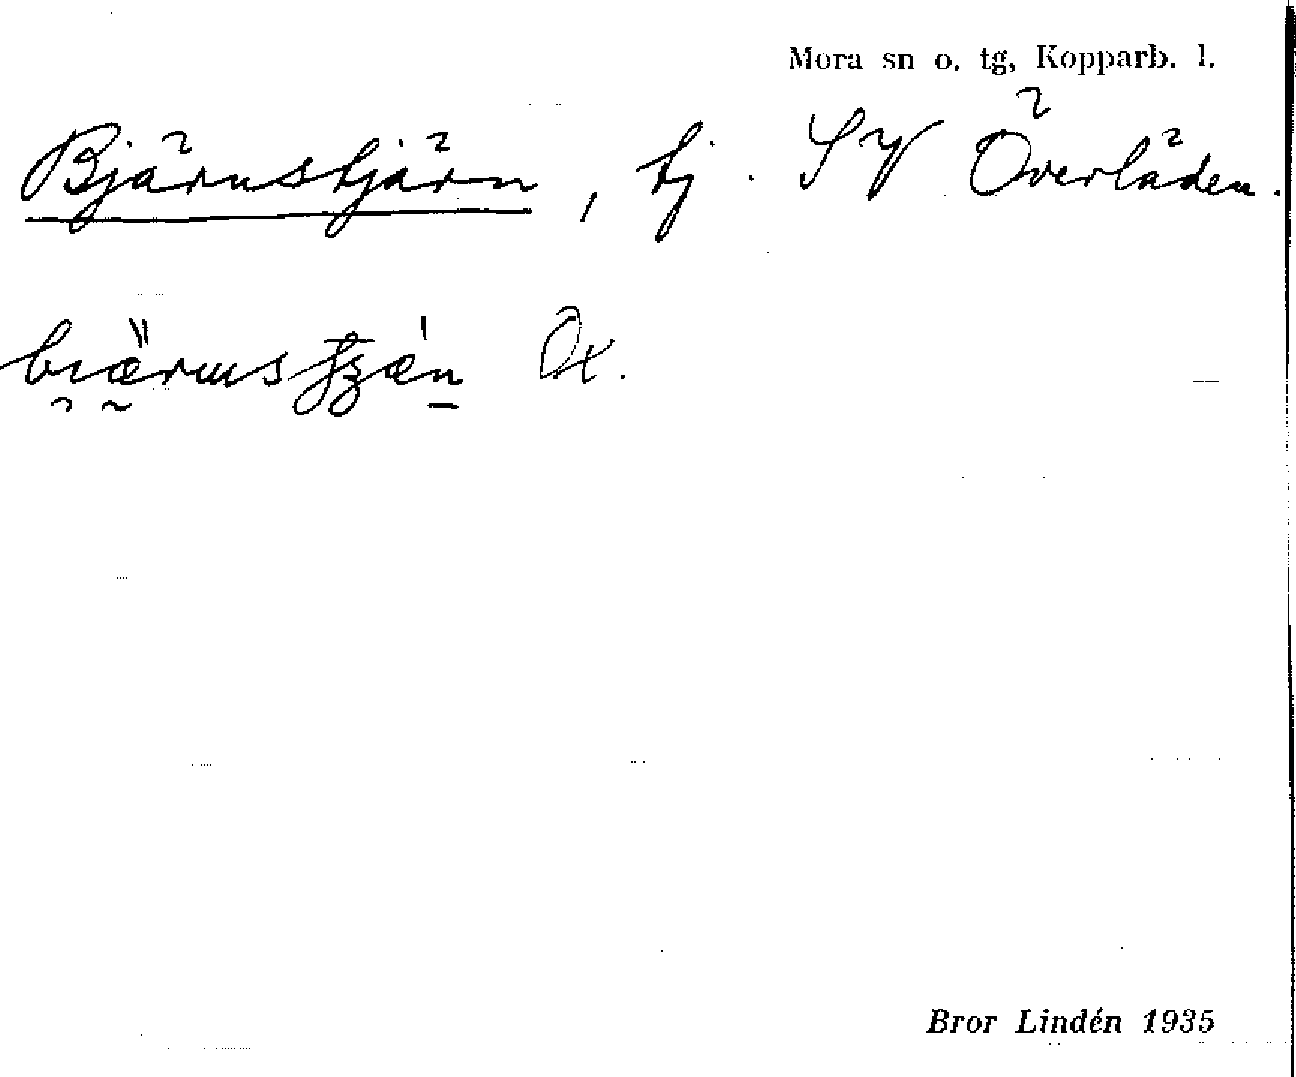 Mora sn o. tg, Kopparb. l.
Bjärnstjärn, tj. SV Överläden.
Ox.
Bror Lindén 1935